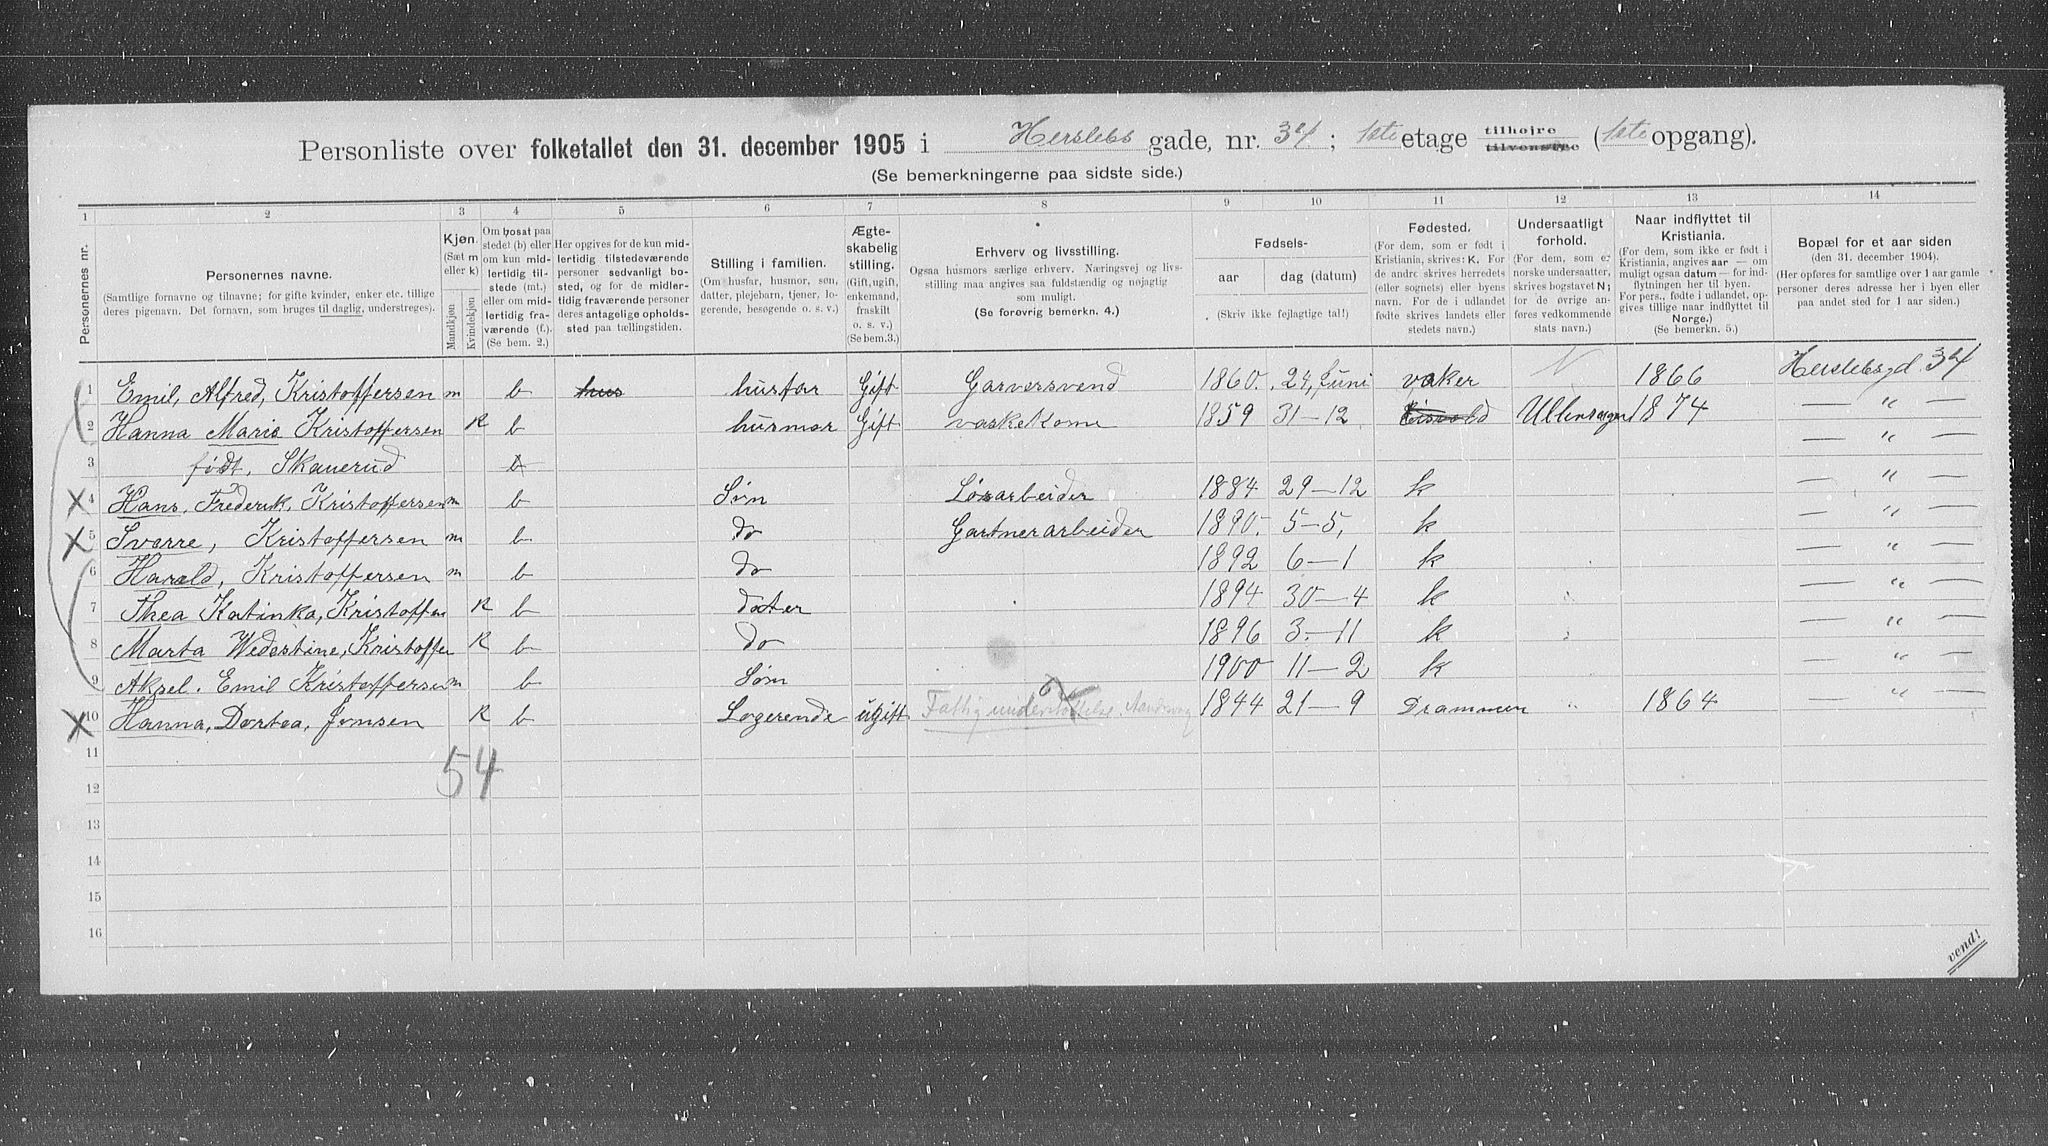 Personliste over folketallet den 31. december 1905 i Herslebs gade, nr. 34; 1ste etage tilhøjre tilvenstre (1ste opgang).
(Se bemerkningerne paa sidste side.)
1 2 3 4 5 6 7 8 9 10 11 12 13 14
Personernes nr.
Personernes navne.
(Samtlige fornavne og tilnavne; for gifte kvinder, enker etc. tillige deres pigenavn. Det fornavn, som bruges til daglig, understreges).
Kjøn.
(Sæt m eller k)
Mandkjøn
Kvindekjøn
Om bosat paa stedet (b) eller om kun midlertidig tilstede (mt.) eller om midlertidig fraværende (f.).
(Se bem. 2.)
Her opgives for de kun midlertidig tilstedeværende personer sedvanligt bosted, og for de midlertidig fraværende personer deres antagelige opholdssted paa tællingstiden.
Stilling i familien.
(Om husfar, husmor, søn, datter, plejebarn, tjener, logerende, besøgende o. s. v.)
Ægteskabelig stilling.
(Gift, ugift, enkemand, fraskilt o. s. v.)
(Se bem.3.)
Erhverv og livsstilling.
Ogsaa husmors særlige erhverv. Næringsvej og livsstilling maa angives saa fuldstændig og nøjagtig som muligt.
(Se forøvrig bemerkn. 4.)
Fødsels-
aar
dag (datum)
(Skriv ikke fejlagtige tal!)
Fødested.
(For dem, som er født i Kristiania, skrives: K. For de andre skrives herredets (eller sognets) eller byens navn. For de i udlandet fødte skrives landets eller stedets navn.)
Undersaatligt forhold.
(For dem, som er norske undersaatter, skrives bogstavet N; for de øvrige anføres vedkommende stats navn.)
Naar indflyttet til Kristiania.
(For dem, som ikke er født i Kristiania, angives aar — om muligt ogsaa datum — for indflytningen her til byen. For pers., fødte i udlandet, opgives tillige naar indflyttet til Norge.)
(Se bemerkn. 5.)
Bopæl for et aar siden
(den 31. december 1904).
(Her opføres for samtlige over 1 aar gamle personer deres adresse her i byen eller paa andet sted for 1 aar siden.)
1 Emil, Alfred, Kristoffersen m b hus husfar Gift Garversvend 1860. 24, Juni vaker N 1866 Herslebsgd 34
2 Hanna Maria Kristoffersen K b husmor Gift vaskekone 1859 31-12 Eisvold Ullensager 1874 — " —
3 født, Skauerud b — " —
4 Hans, Frederik, Kristoffersen m b Søn Løsarbeider 1884 29-12 k — " —
5 Sverre, Kristoffersen m b do Gartnerarbeider 1890. 5-5, k — " —
6 Harald, Kristoffersen m b do 1892 6-1 k — " —
7 Thea Katinka, Kristoffer K b dater 1894 30-4 k — " —
8 Marta Wedastine, Kristoffer K b do 1896 3.-11 k — " —
9 Aksel. Emil Kristoffersen m b Søn 1900 11-2 k — " —
10 Hanna, Dortea, Jonsen K b Logerende ugift Fattigunderstøttelse 1844 21-9 Drammen " 1864 — " —
54
11
12
13
14
15
16
vend!